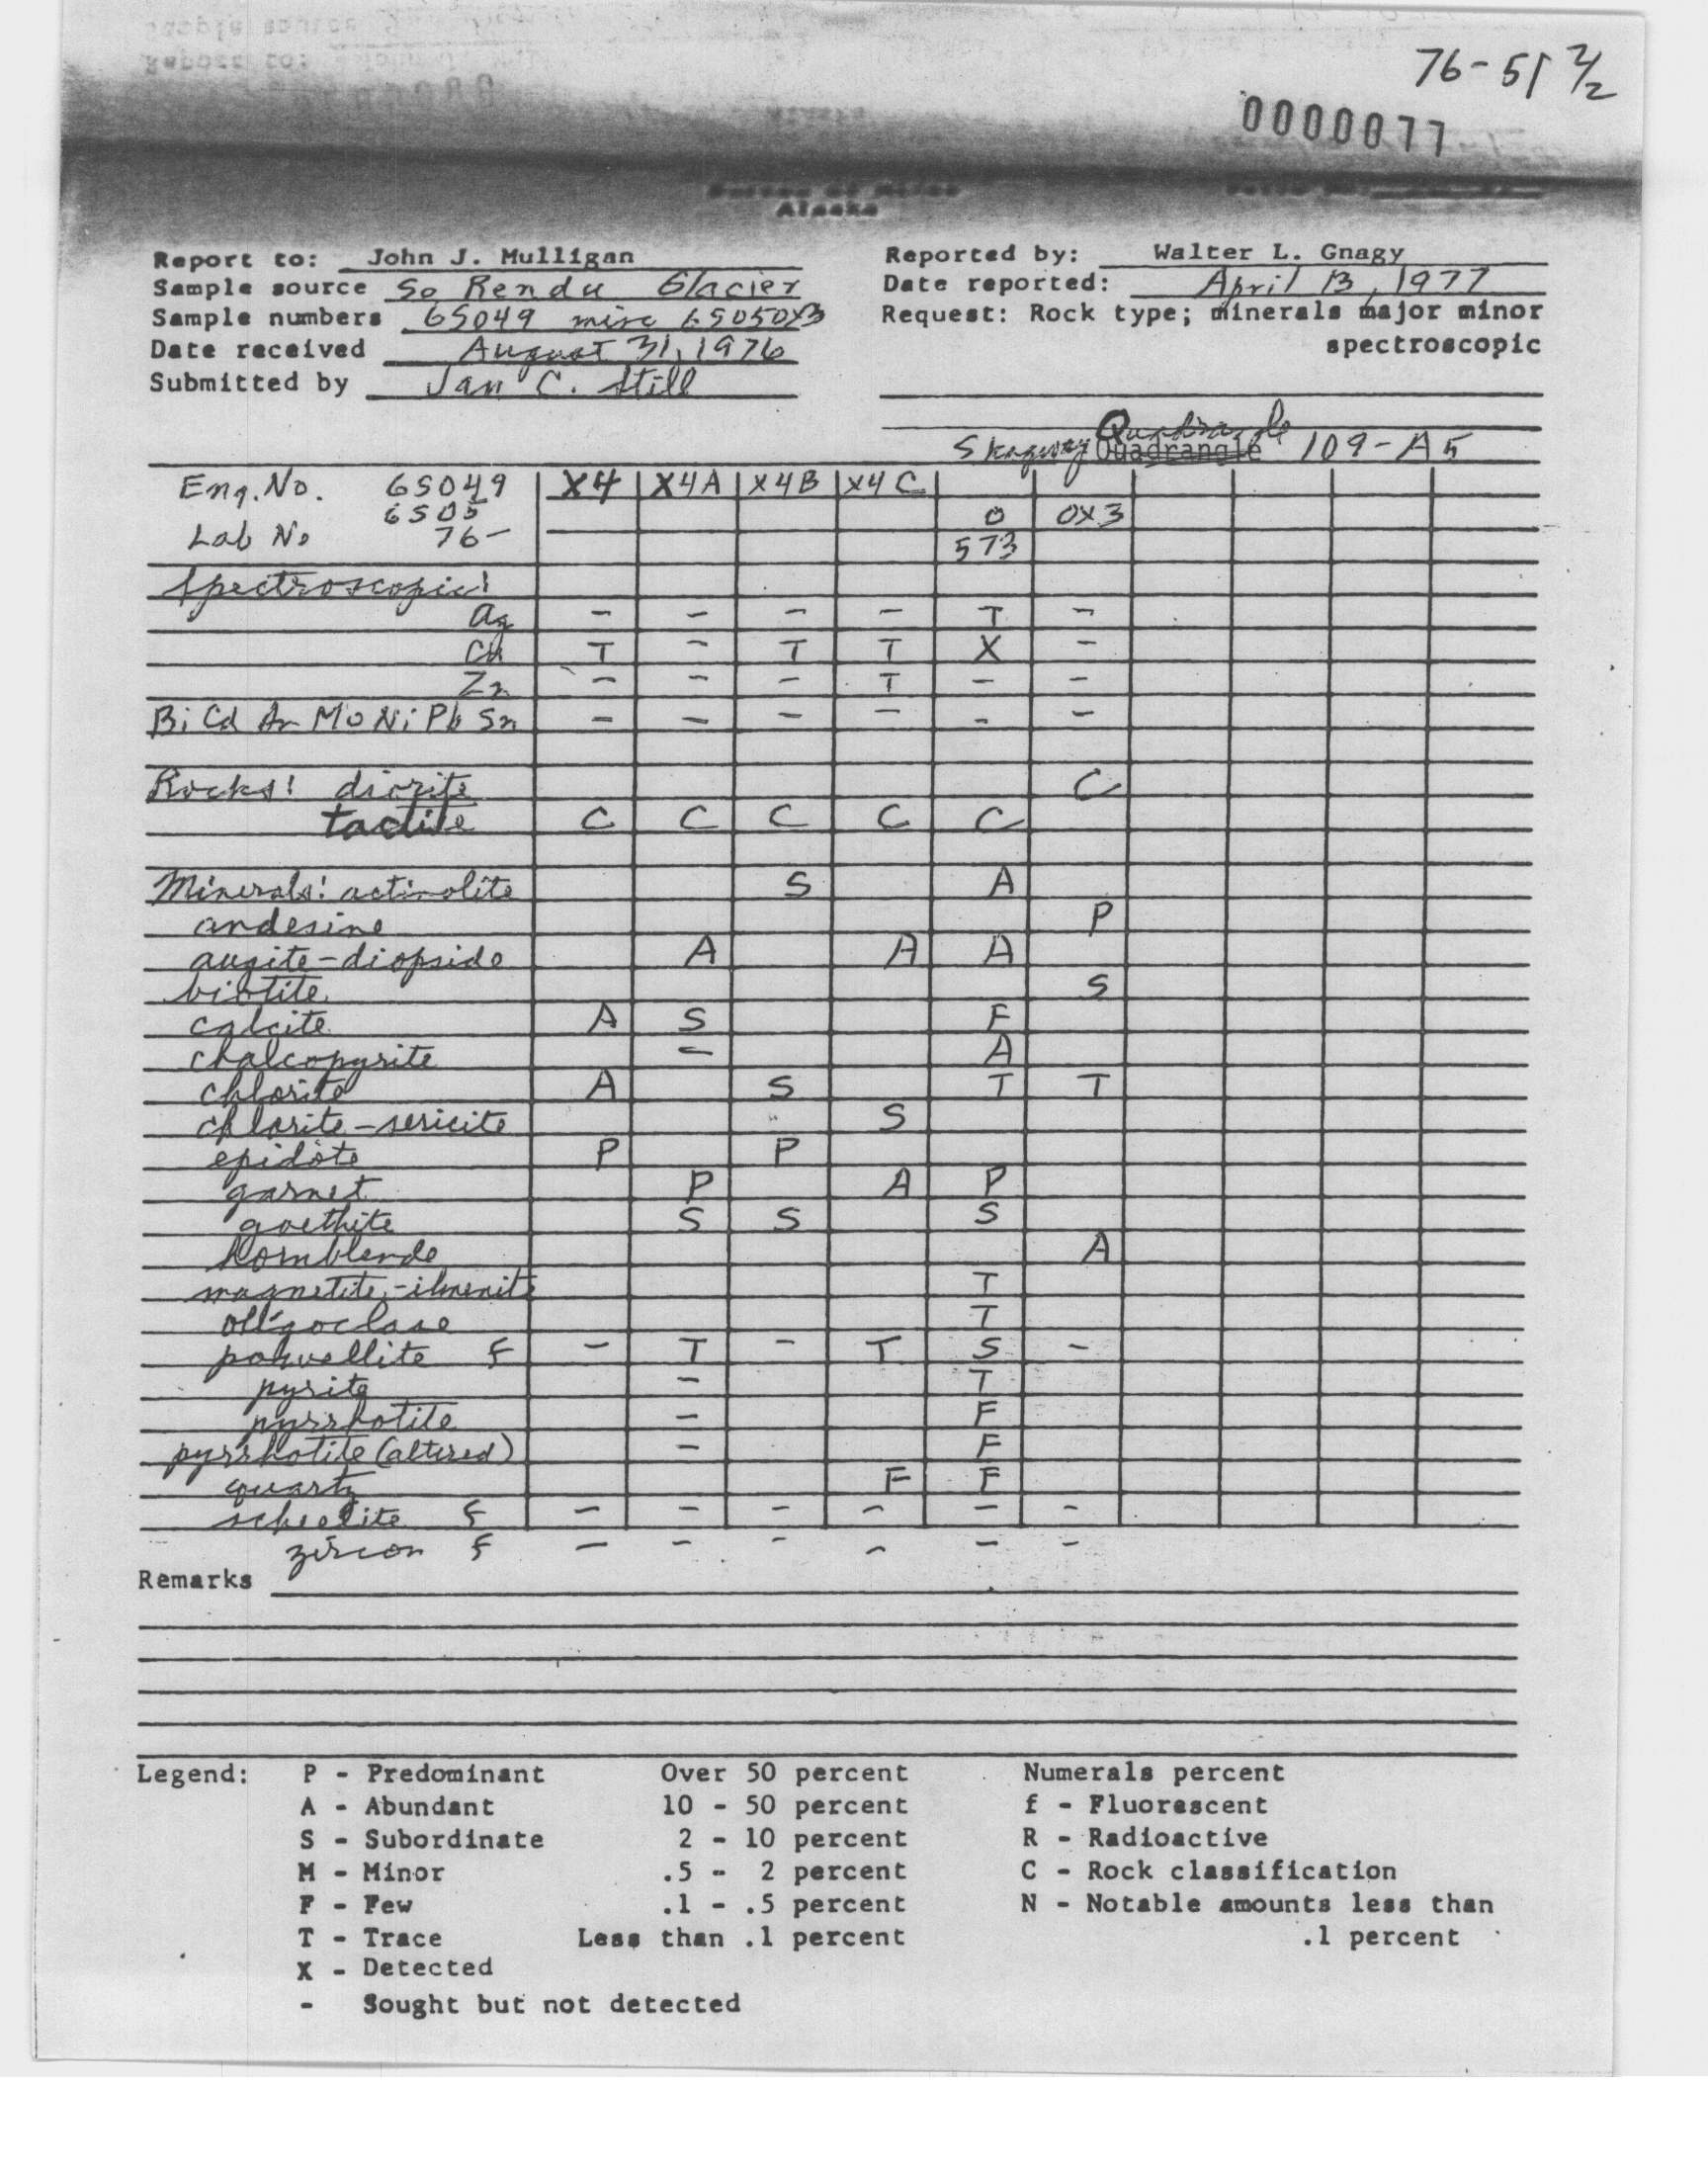 76-51 2/2
0000077
Bureau of Mines
Alaska
Report to: John J. Mulligan Reported by: Walter L. Gnagy
Sample source So Rendu Glacier Date reported: April 13, 1977
Sample numbers 6S049 misc 6S050X3 Request: Rock type; minerals major minor
Date received August 31, 1976 spectroscopic
Submitted by Jan C. Still
Quadrangle
Skagway Quadrangle 109-A5
Eng. No. 6S049 X4 X4A X4B X4C
6S05 0 0X3
Lab No 76- 573
Spectroscopic:
Ag - - - - T -
Cu T - T T X -
Zn - - - T - -
Bi Cd As Mo Ni Pb Sn - - - - - -
Rocks: diorite C
tactite C C C C C
Minerals: actinolite S A
andesine P
augite-diopside A A A
biotite S
calcite A S F
chalcopyrite - A
chlorite A S T T
chlorite-sericite S
epidote P P
garnet P A P
goethite S S S
hornblende A
magnetite-ilmenite T
oligoclase T
powellite f - T - T S -
pyrite - T
pyrrhotite - F
pyrrhotite (altered) - F
quartz F F
scheelite f - - - - - -
zircon f - - - - - -
Remarks
Legend: P - Predominant Over 50 percent Numerals percent
A - Abundant 10 - 50 percent f - Fluorescent
S - Subordinate 2 - 10 percent R - Radioactive
M - Minor .5 - 2 percent C - Rock classification
F - Few .1 - .5 percent N - Notable amounts less than
T - Trace Less than .1 percent .1 percent
X - Detected
- Sought but not detected